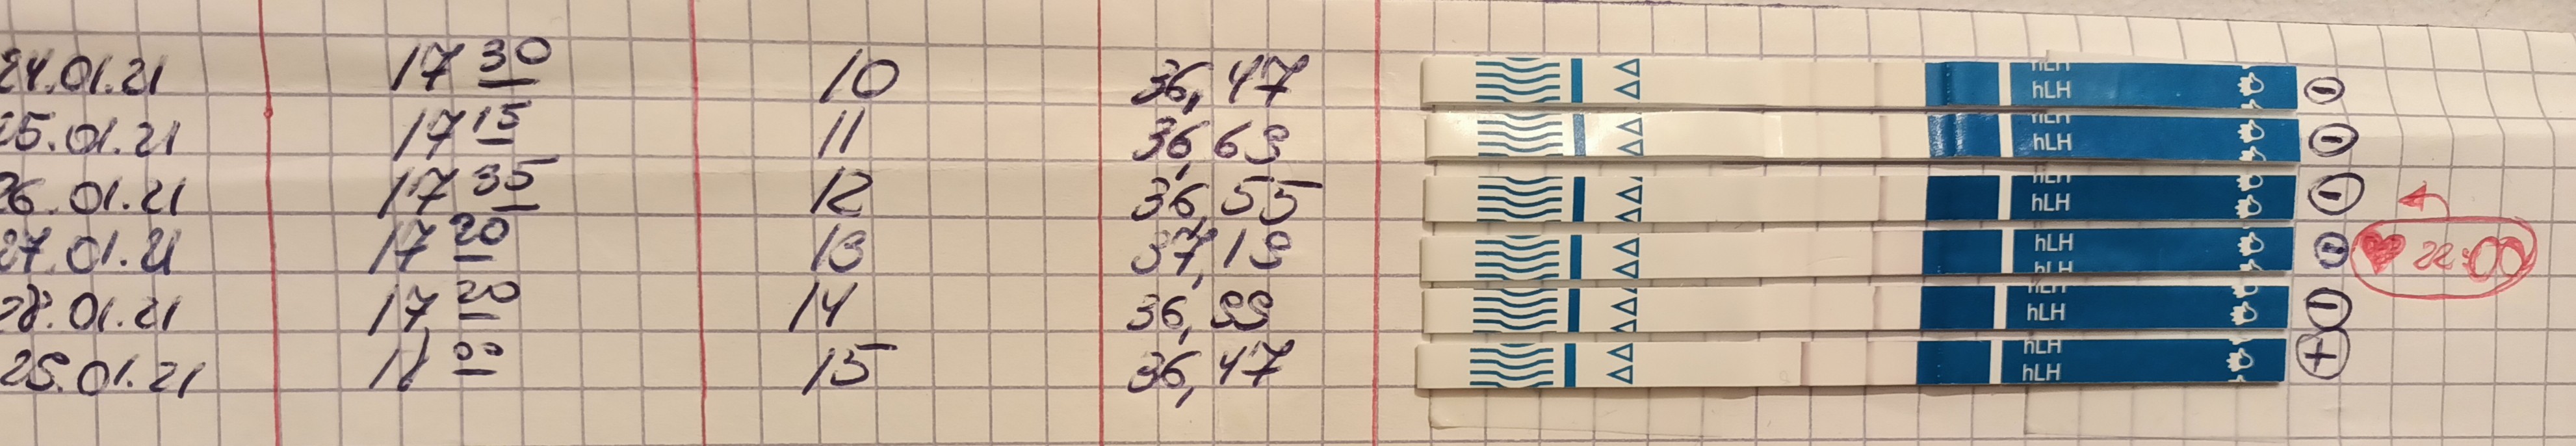 24.01.21 17 30 10 36,47 hLH hLH −
25.01.21 17 15 11 36,69 hLH hLH −
26.01.21 17 35 12 36,55 hLH hLH −
27.01.21 17 20 13 37,19 hLH hLH − ♥ 22:00
28.01.21 17 20 14 36,99 hLH hLH −
29.01.21 18 00 15 36,47 hLH hLH +